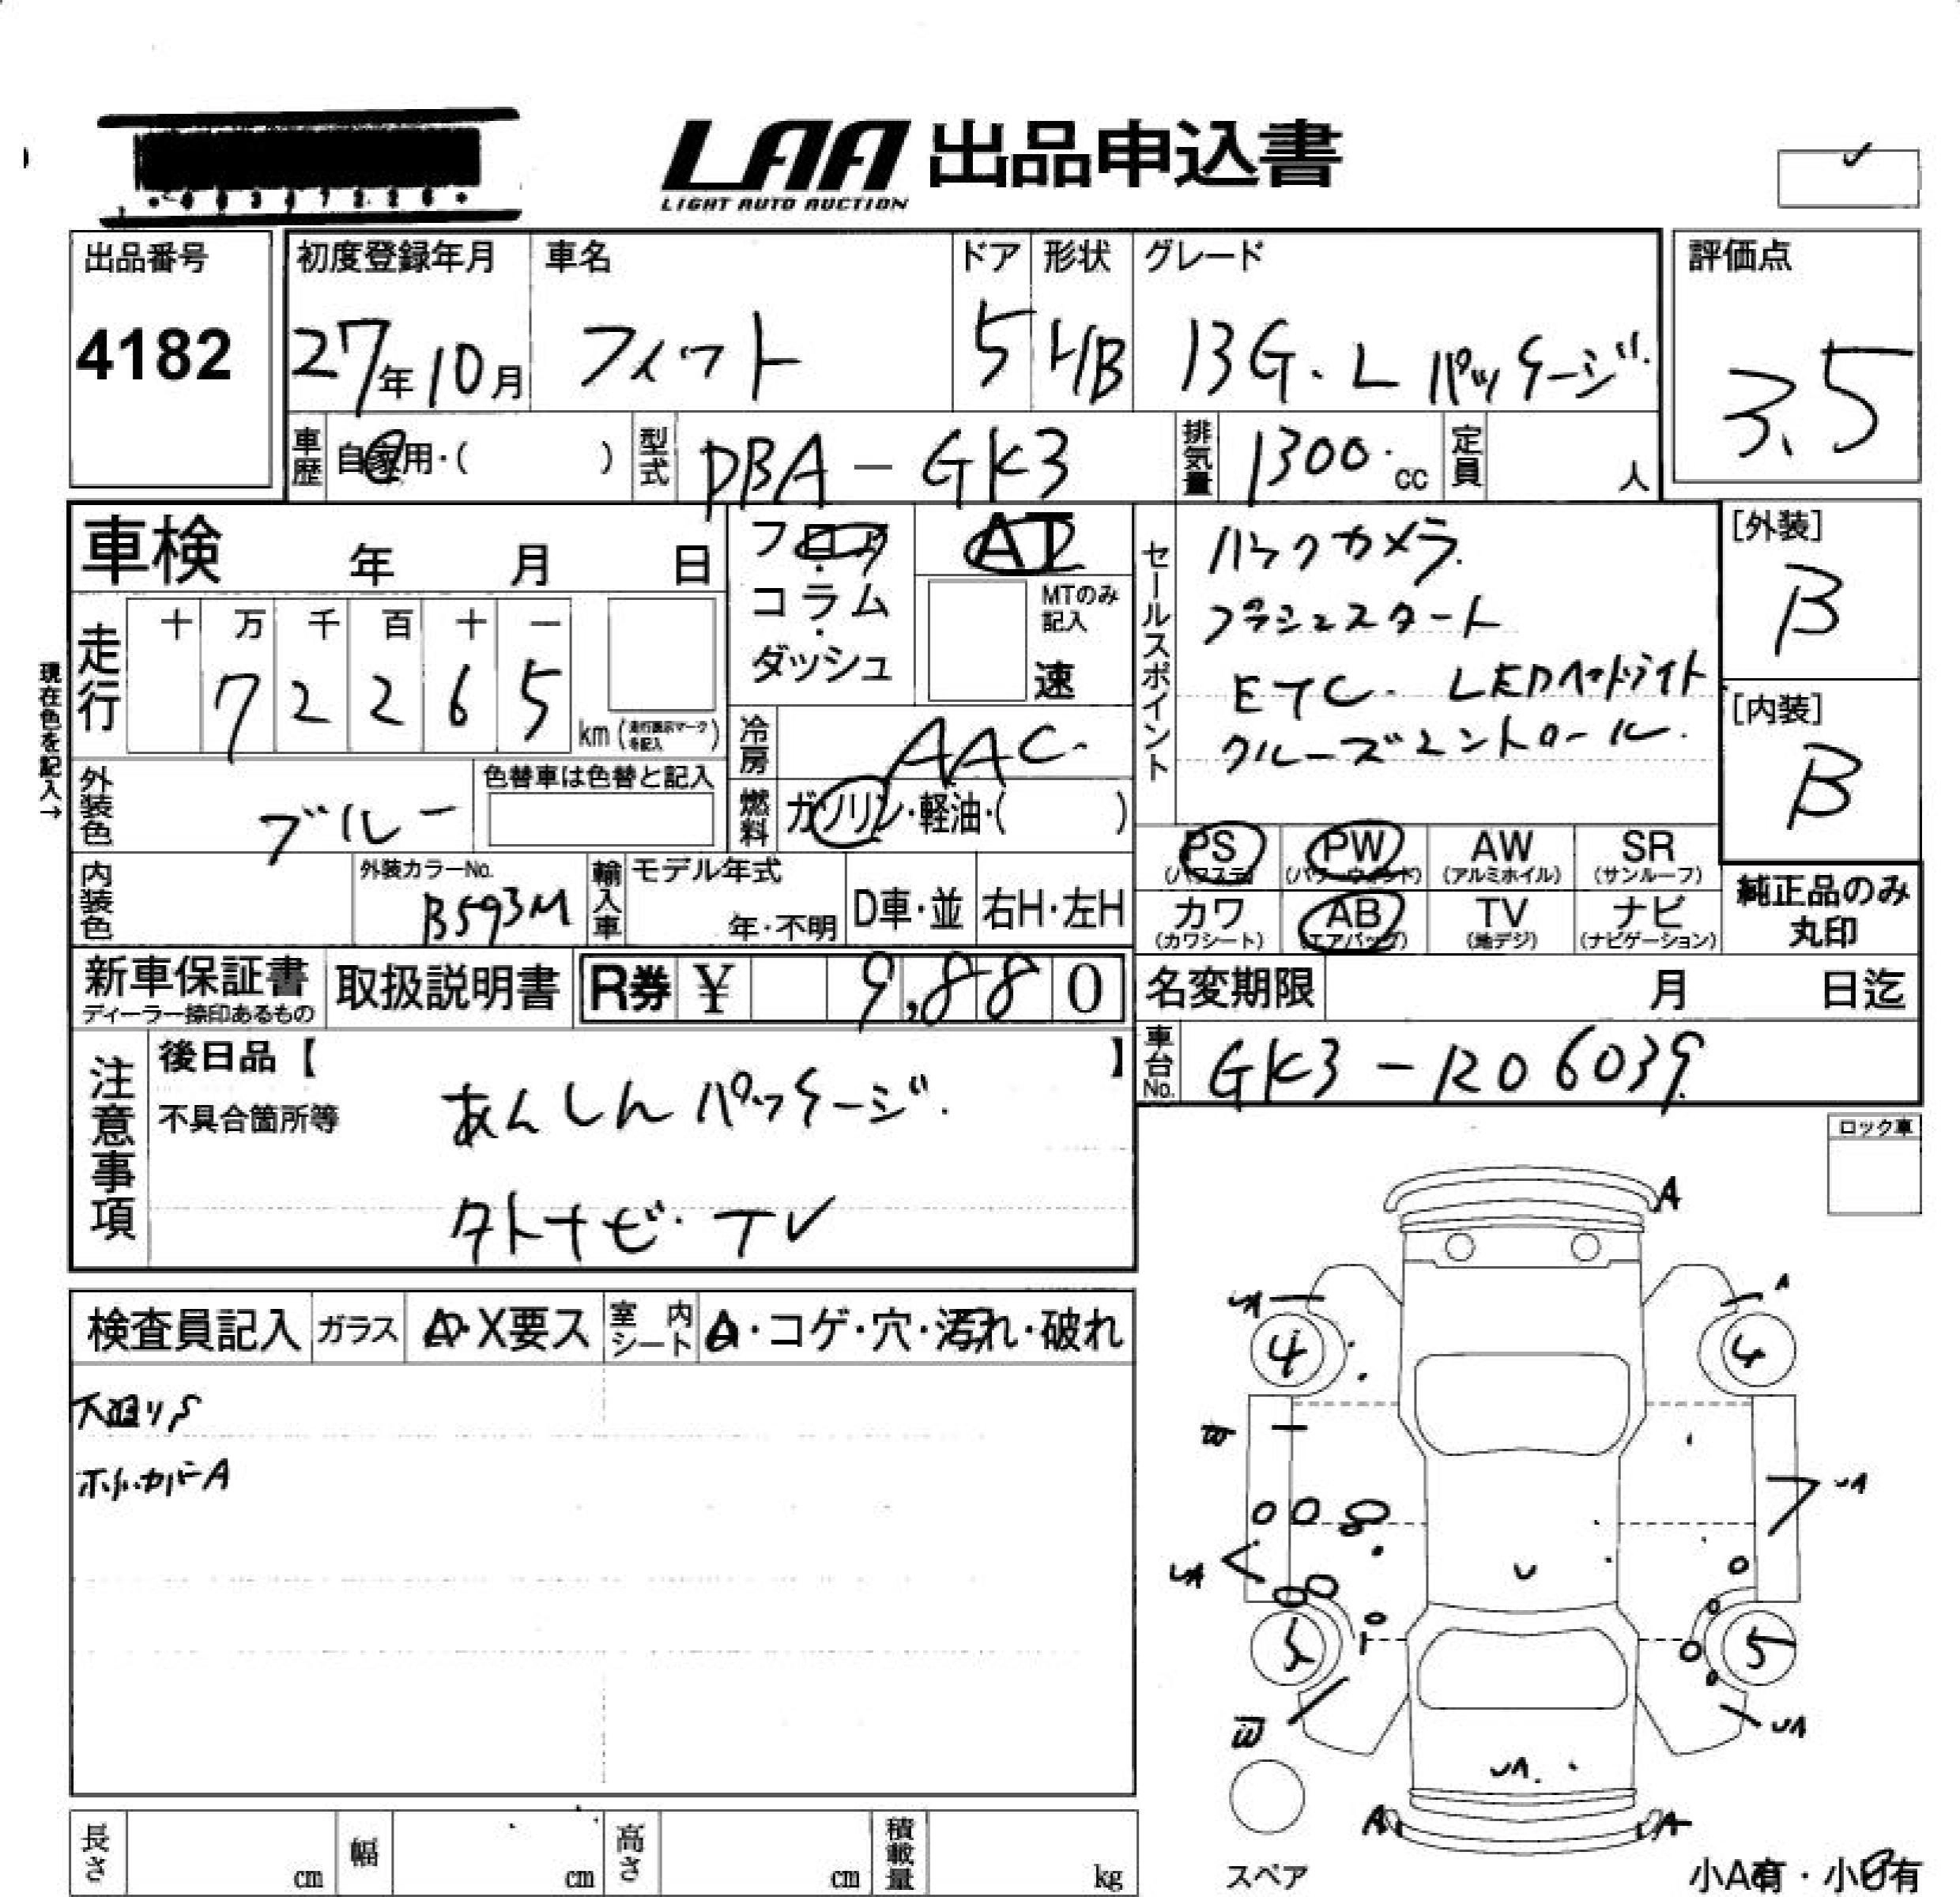 LAA 出品申込書
LIGHT AUTO AUCTION
出品番号
4182
初度登録年月
27年10月
車名
フィット
ドア
5
形状
H/B
グレード
13G・L パッケージ
評価点
3.5
車歴 自家用・( )
型式 DBA-GK3
排気量 1300 cc
定員 人
車検 年 月 日
フロア・コラム・ダッシュ
AT
MTのみ記入
速
セールスポイント
バックカメラ
プッシュスタート
ETC. LEDヘッドライト
クルーズコントロール
[外装]
B
[内装]
B
現在色を記入→
走行
十 万 千 百 十 一
7 2 2 6 5 km (走行表示マークを記入)
冷房 AAC
燃料 ガソリン・軽油・( )
外装色 ブルー
色替車は色替と記入
内装色
外装カラーNo.
B593M
輸入車
モデル年式
年・不明
D車・並
右H・左H
PS (パワステ)
PW (パワーウィンド)
AW (アルミホイル)
SR (サンルーフ)
カワ (カワシート)
AB (エアバッグ)
TV (地デジ)
ナビ (ナビゲーション)
純正品のみ
丸印
新車保証書
ディーラー捺印あるもの
取扱説明書
R券 ¥ 9,880
名変期限 月 日迄
車台No. GK3-1206039
注意事項
後日品【 】
不具合箇所等
あんしんパッケージ
タトナビ・TV
ロック車
検査員記入
ガラス
A・X要ス
室内シート
A・コゲ・穴・汚れ・破れ
A
A
4
4
5
5
A
A
スペア
長さ cm
幅 cm
高さ cm
積載量 kg
小A有・小B有